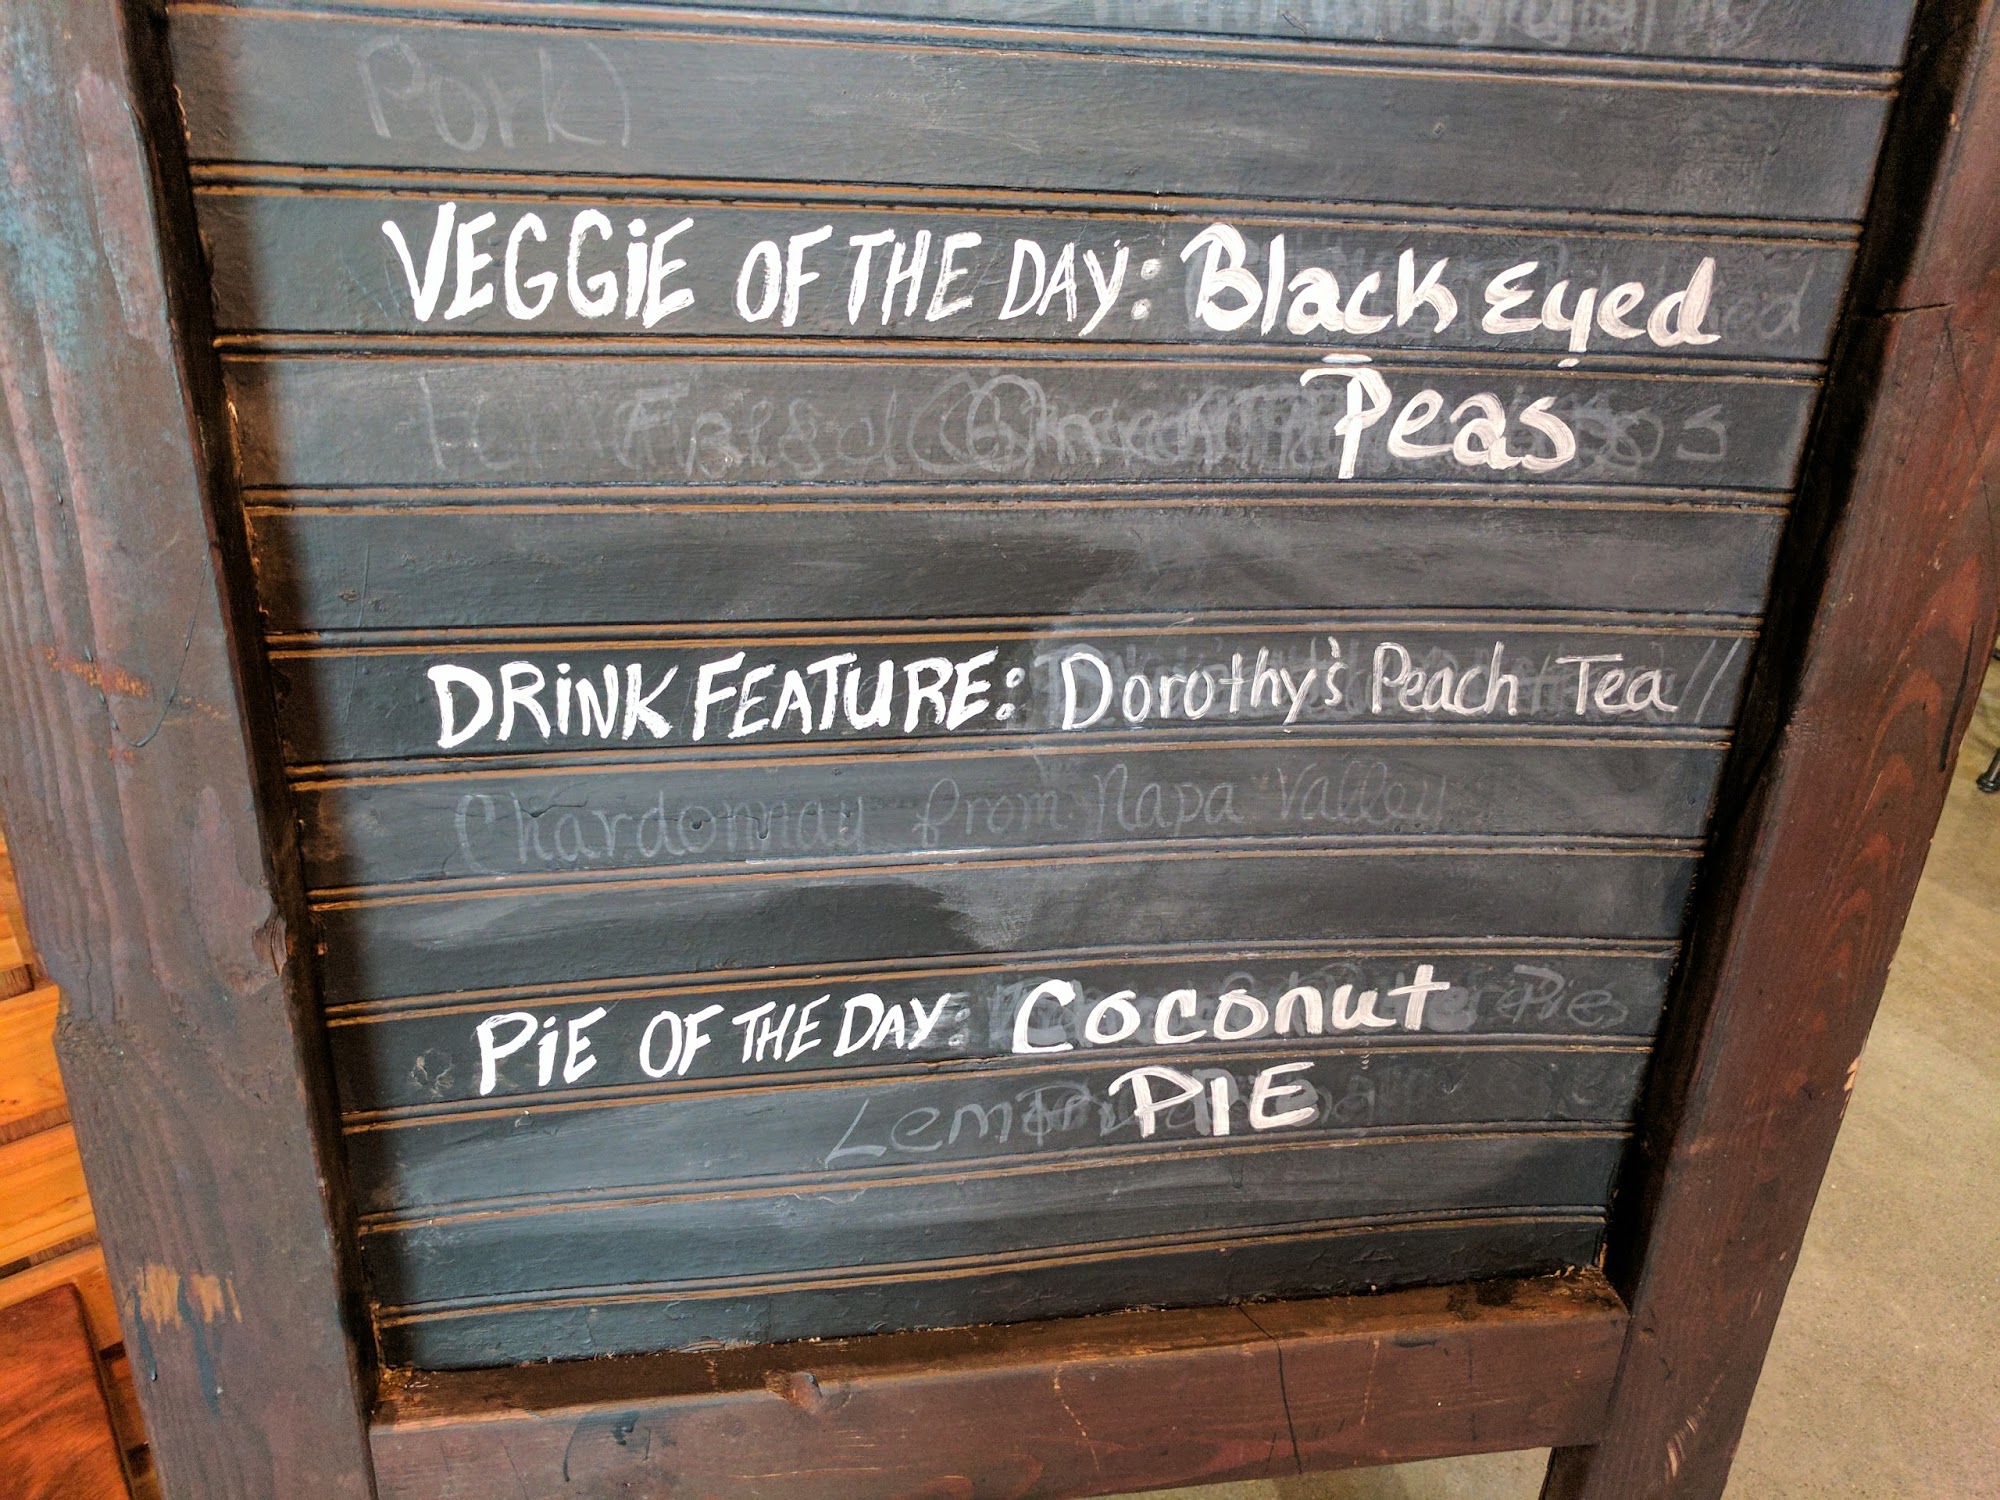 Pork)
VEGGiE OF THE DAY: Black Eyed
Peas
DRiNK FEATURE: Dorothy's Peach Tea
Chardonnay from Napa Valley
PiE OF THE DAY: Coconut
PIE
Lemon